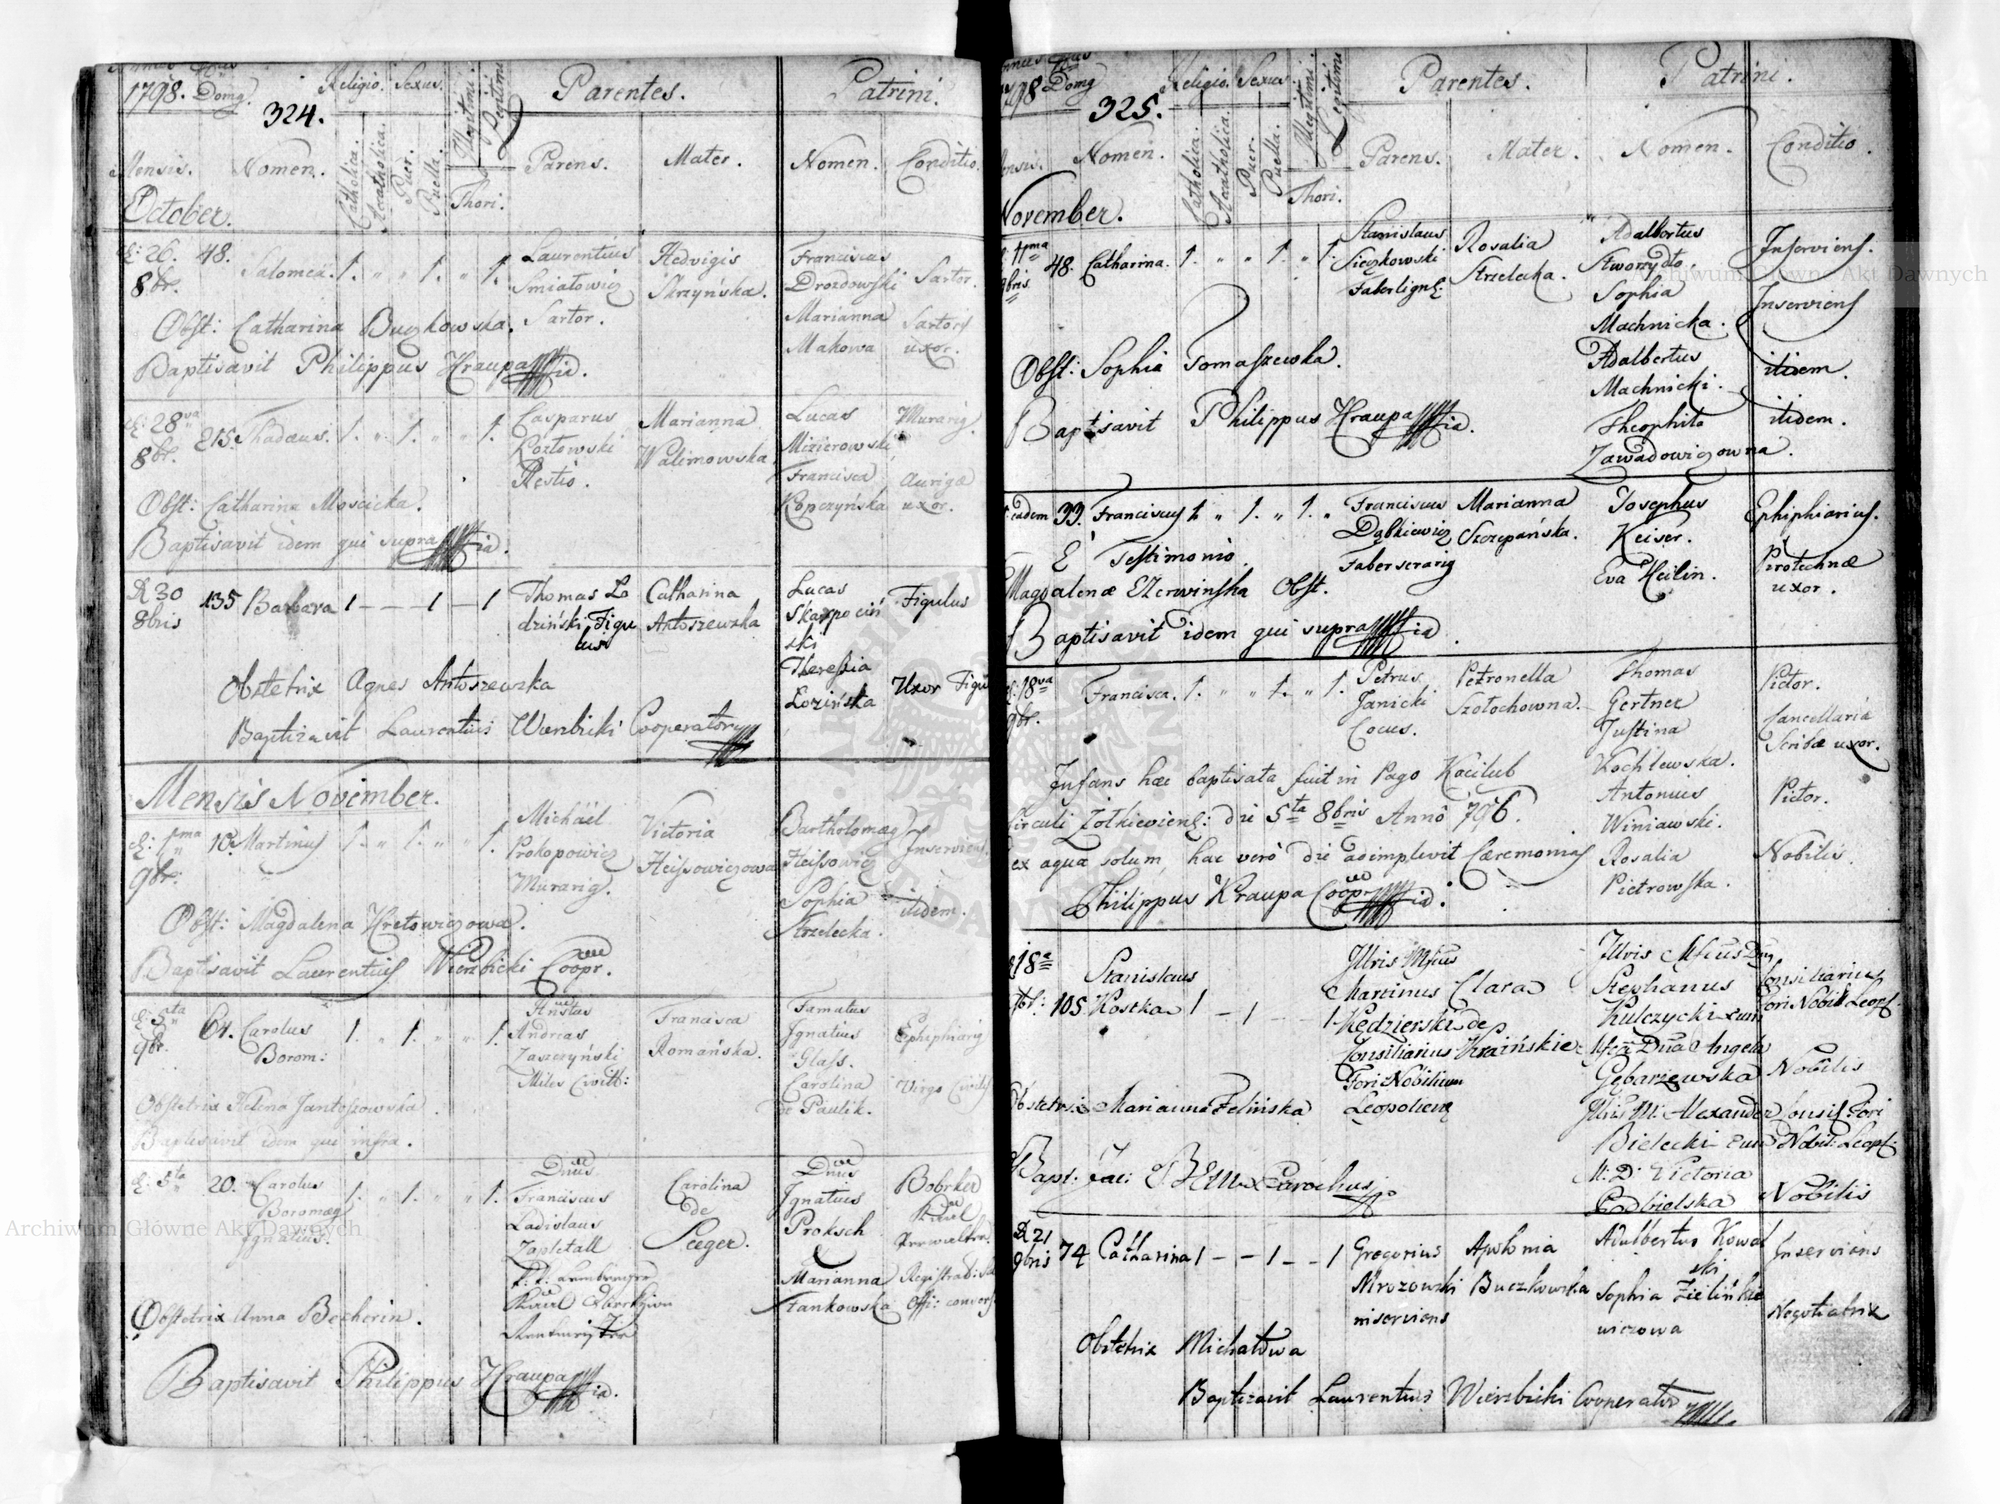 1798. Domg. 324. Religio. Sexus. Illegitimi. Legitimi Parentes. Patrini.
Mensis. Nomen. Catholica. Acatholica. Puer. Puella. Thori. Parens. Mater. Nomen. Conditio.
October.
d: 26. 48. Salomea. 1. " " 1. " 1. Laurentius Hedvigis Franciscus
8br. Smiałowicz Skrzyńska. Drozdowski Sartor.
Obst: Catharina Buczkowska. Sartor. Marianna Sartoris
Baptisavit Philippus Kraupa Makowa uxor.
d: 28va 215. Thadæus. 1. " 1. " " 1. Casparus Marianna Lucas Murarig.
8br. Kozłowski Walimowska Mizierowski
Restio. Francisca Aurigæ
Obst: Catharina Moscicka. Kopczyńska uxor.
Baptisavit idem qui supra
D 30 135 Barbara 1 - - - 1 - 1 Thomas Lo Catharina Lucas Figulus
8bris dziński Figu Antoszewska Skarpeciń
lus ski
Obstetrix Agnes Antoszewzka Theressia Uxor Figu
Łozińska
Baptizavit Laurentius Wierzbicki Cooperator
Mensis November.
d: 1ma 10. Martinus 1. " 1. " " 1. Michaël Victoria Bartholomæg Inserviens
9br: Prokopowicz Heissowiczowa Heissowicz
Murarig. Sophia itidem.
Obst: Magdalena Kretowiczowa. Strzelecka.
Baptisavit Laurentius Wierzbicki Coopr.
61. Carolus 1. " 1. " " 1. Andreas Francisca Famatus Ephiphiarig
9br. Borom: Zaszczyński Romańska. Ignatius
Miles Civitt: Glass.
Obstetrix Helena Jantoszowska. Carolina Virgo Civilis
Baptisavit idem qui infra. de Paulik.
d: 5ta 20. Carolus 1. " 1. " " 1. Dnus Carolina Dnus Bobrker
Boromæg Franciscus de Ignatius
Ignatius. Ladislaus Seeger. Proksch
Zapletall
Marianna Registrat:
Obstetrix Anna Becherin. Stankowska Offi: convers.
Baptisavit Philippus Kraupa
1798 Domg 325. Religio. Sexus Illegitimi Legitimi Parentes. Patrini.
Mensis. Nomen. Catholica. Acatholica. Puer. Puella. Thori. Parens. Mater. Nomen. Conditio
November.
1ma 48. Catharina. 1. " " 1. " 1. Stanislaus Rosalia Adalbertus Inserviens.
9bris Sieczkowski Strzelecka. Stworzydło.
Faber lign: Sophia Inserviens
Machnicka.
Obst: Sophia Tomaszewska. Adalbertus itidem.
Machnicki.
Baptisavit Philippus Kraupa Theophila itidem.
Zawadowiczowna.
eadem 33. Franciscus 1. " 1. " 1. " Franciscus Marianna Josephus Ephiphiarius.
E' Testimonio Dąbkiewicz Szczepańska. Keiser.
Magdalenæ Ezerwinska Obst. Faber serarig Eva Heilin. Pirotechnæ
uxor.
Baptisavit idem qui supra
18va Francisca. 1. " " 1. " 1. Petrus Petronella Thomas Pictor.
9br. Janicki Szołochowna. Gertner
Cocus. Justina Cancellariæ
Infans hæc baptisata fuit in Pago Kocilub Kochlewska. Scribæ uxor.
Circuli Żołkieviens: die 5ta 8bris Anno 796. Antonius Pictor.
Winiawski.
ex aqua solum, hac vero die adimplevit Cæremonias Rosalia Nobilis.
Philippus Kraupa Coopr. Pietrowska.
18a Stanislaus Illris Mfcus Illris Mfcus Dnus
9br: 105 Kostka 1 - 1 - - 1 Martinus Clara Stephanus Consiliarius
Kędzierski de Kulczycki cum Fori Nobil: Leops
Consiliarius Kraińskie Mfca Dna Angela
Fori Nobilium Gębarzewska Nobilis
Obstetrix Marianna Zelińska Leopoliens Illris M: Alexander Consil: Fori
Bielecki cum Nobil: Leops:
Bapt: Jac: Bem Parochus M: D: Victoria
Podbielska Nobilis
D 21 74 Catharina 1 - - 1 - - 1 Gregorius Apolonia Adalbertus Kowal Inserviens
9bris Mrozowski Buczkowska ski
inserviens Sophia Zielińkie Negotiatrix
wiczowa
Obstetrix Michałowa
Baptizavit Laurentius Wierzbicki Cooperator
Archiwum Główne Akt Dawnych
Archiwum Główne Akt Dawnych